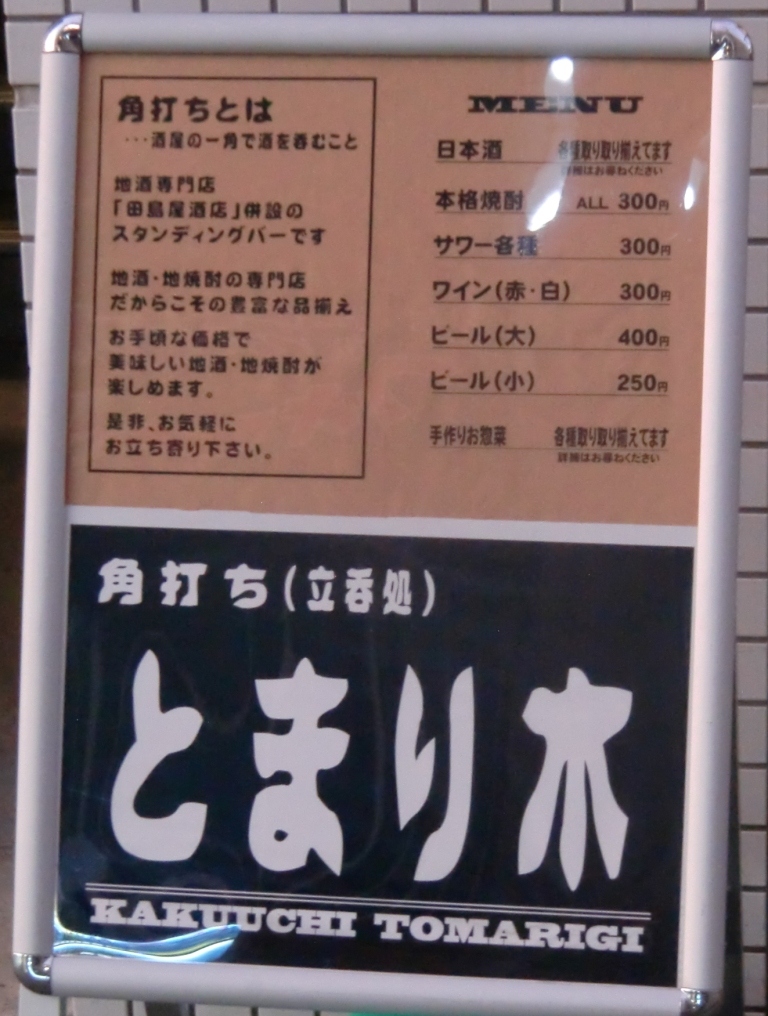 角打ちとは
…酒屋の一角で酒を呑むこと
地酒専門店
「田島屋酒店」併設の
スタンディングバーです
地酒・地焼酎の専門店
だからこその豊富な品揃え
お手頃な価格で
美味しい地酒・地焼酎が
楽しめます。
是非、お気軽に
お立ち寄り下さい。
MENU
日本酒 各種取り取り揃えてます
詳細はお尋ねください
本格焼酎 ALL 300円
サワー各種 300円
ワイン(赤・白) 300円
ビール(大) 400円
ビール(小) 250円
手作りお惣菜 各種取り取り揃えてます
詳細はお尋ねください
角打ち(立呑処)
とまり木
KAKUUCHI TOMARIGI